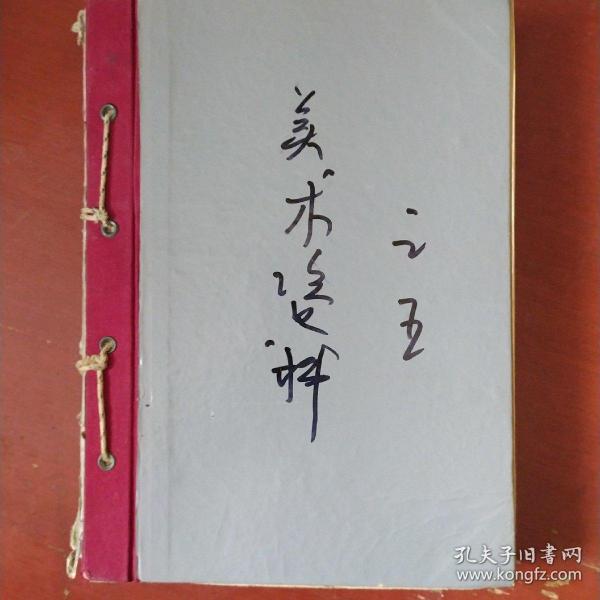 美术资料
之五
孔夫子旧書网
www.kongfz.com